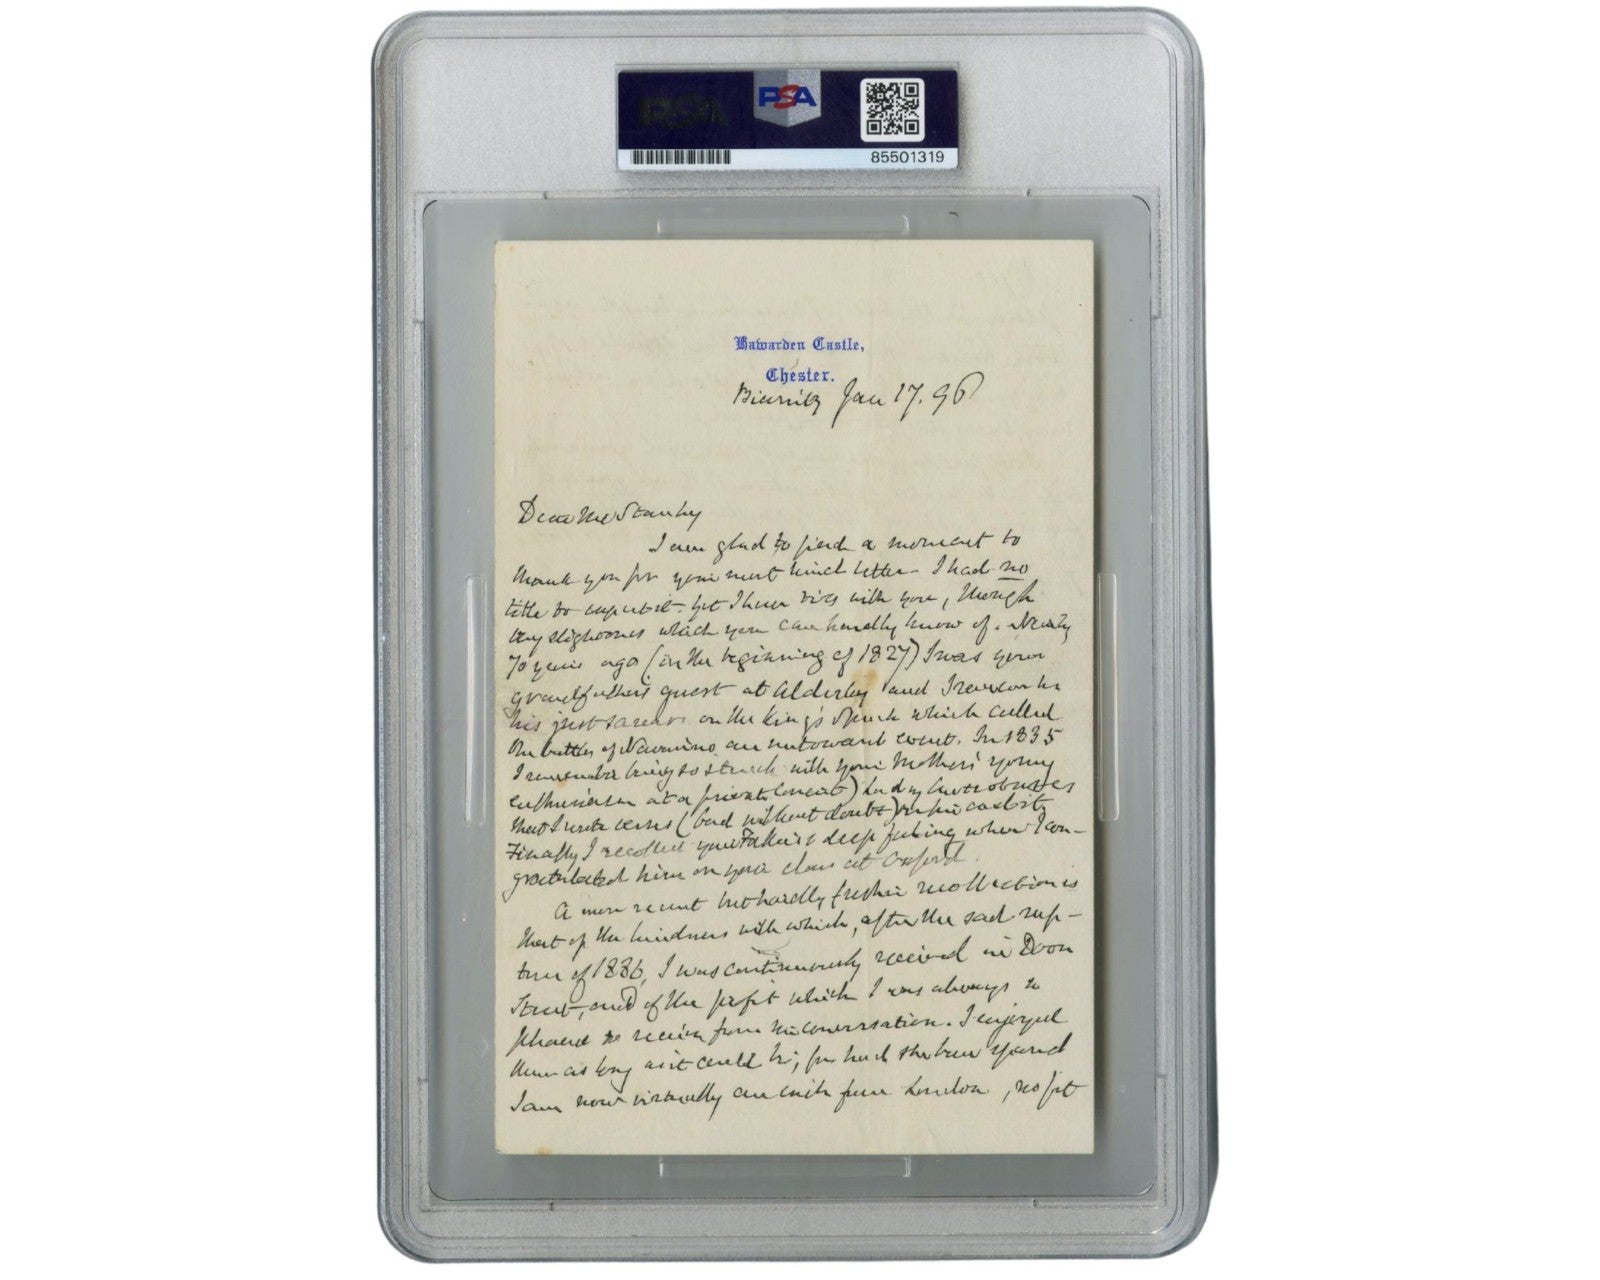 PSA
85501319
Hawarden Castle,
Chester.
Biarritz Jan 17. 96
Dear Mr Stanley
I am glad to find a moment to
thank you for your most kind letter - I had no
title to expect it - yet I have ties with you, though
slight ones which you can hardly know of. Nearly
70 years ago (in the beginning of 1827) I was your
grandfather's guest at Alderley and I remember
his just on the King's Speech which called
the battle of Navarino an untoward event. In 1835
I remember being so struck with your Mother's young
enthusiasm at a private Concert)
that I wrote verses (bad without doubt)
Finally I recollect your Father's deep feeling when I con-
gratulated him on your class at Oxford.
A more recent but hardly fresher recollection is
that of the kindness with which, after the sad rup-
ture of 1886, I was continuously received in Dover
Street, and of the profit which I was always so
pleased to receive from his conversation. I enjoyed
them as long as it could be; for had she been spared
I am now virtually an exile from London, no fit